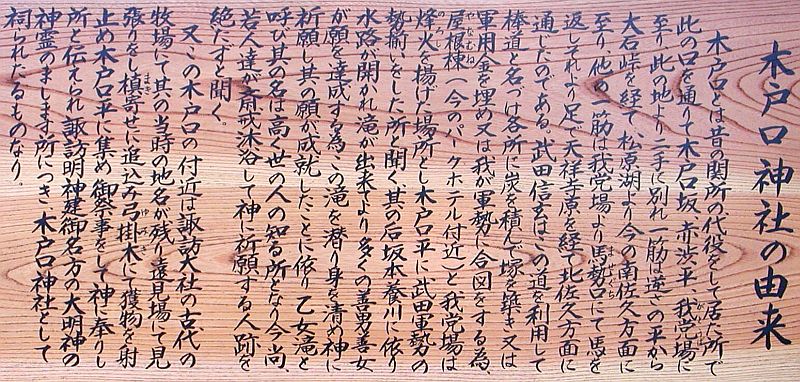 木戸口神社の由来
木戸口とは昔の関所の代役をして居た所で
此の口を通りて木戸口坂、赤渋平、我党場に
至り、此の地より二手に別れ一筋は逆さの平から
大石峠を経て、松原湖より今の南佐久方面に
至り、他の一筋は我党場より馬勢口にて馬を
返しそれより足で天祥寺原を経て北佐久方面に
通じたのである。武田信玄はこの道を利用して
棒道と名づけ各所に炭を積んで塚を築き又は
軍用金を埋め又は我が軍勢に合図をする為、
屋根棟(今のパークホテル付近)と我党場は
烽火を揚げた場所とし木戸口平に武田軍勢の
勢揃いをした所と聞く其の后坂本養川に依り
水路が開かれ滝が出来さより多くの善男善女
が願を達成する為この滝を潜り身を清め神に
祈願し其の願が成就したことに依り乙女滝と
呼び其の名は高く世の人の知る所となり今尚、
若人達が斎戒沐浴して神に祈願する人跡を
絶たずと聞く。
又この木戸口の付近は諏訪大社の古代の
牧場にて其の当時の地名が残り遠見場にて見
張りをし槙寄せに追込み弓掛木にて獲物を射
止め木戸口平に集め御祭事をして神に奉りし
所と伝えられ諏訪明神建御名方の大明神の
神霊のまします所につき木戸口神社として
祠られたるものなり。